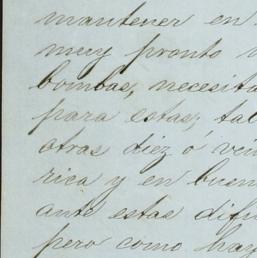 mantener en
muy pronto
bombas, necesita
para estas; tal
otras diez ó vein
rica y en buen
ante estas difi
pero como hay